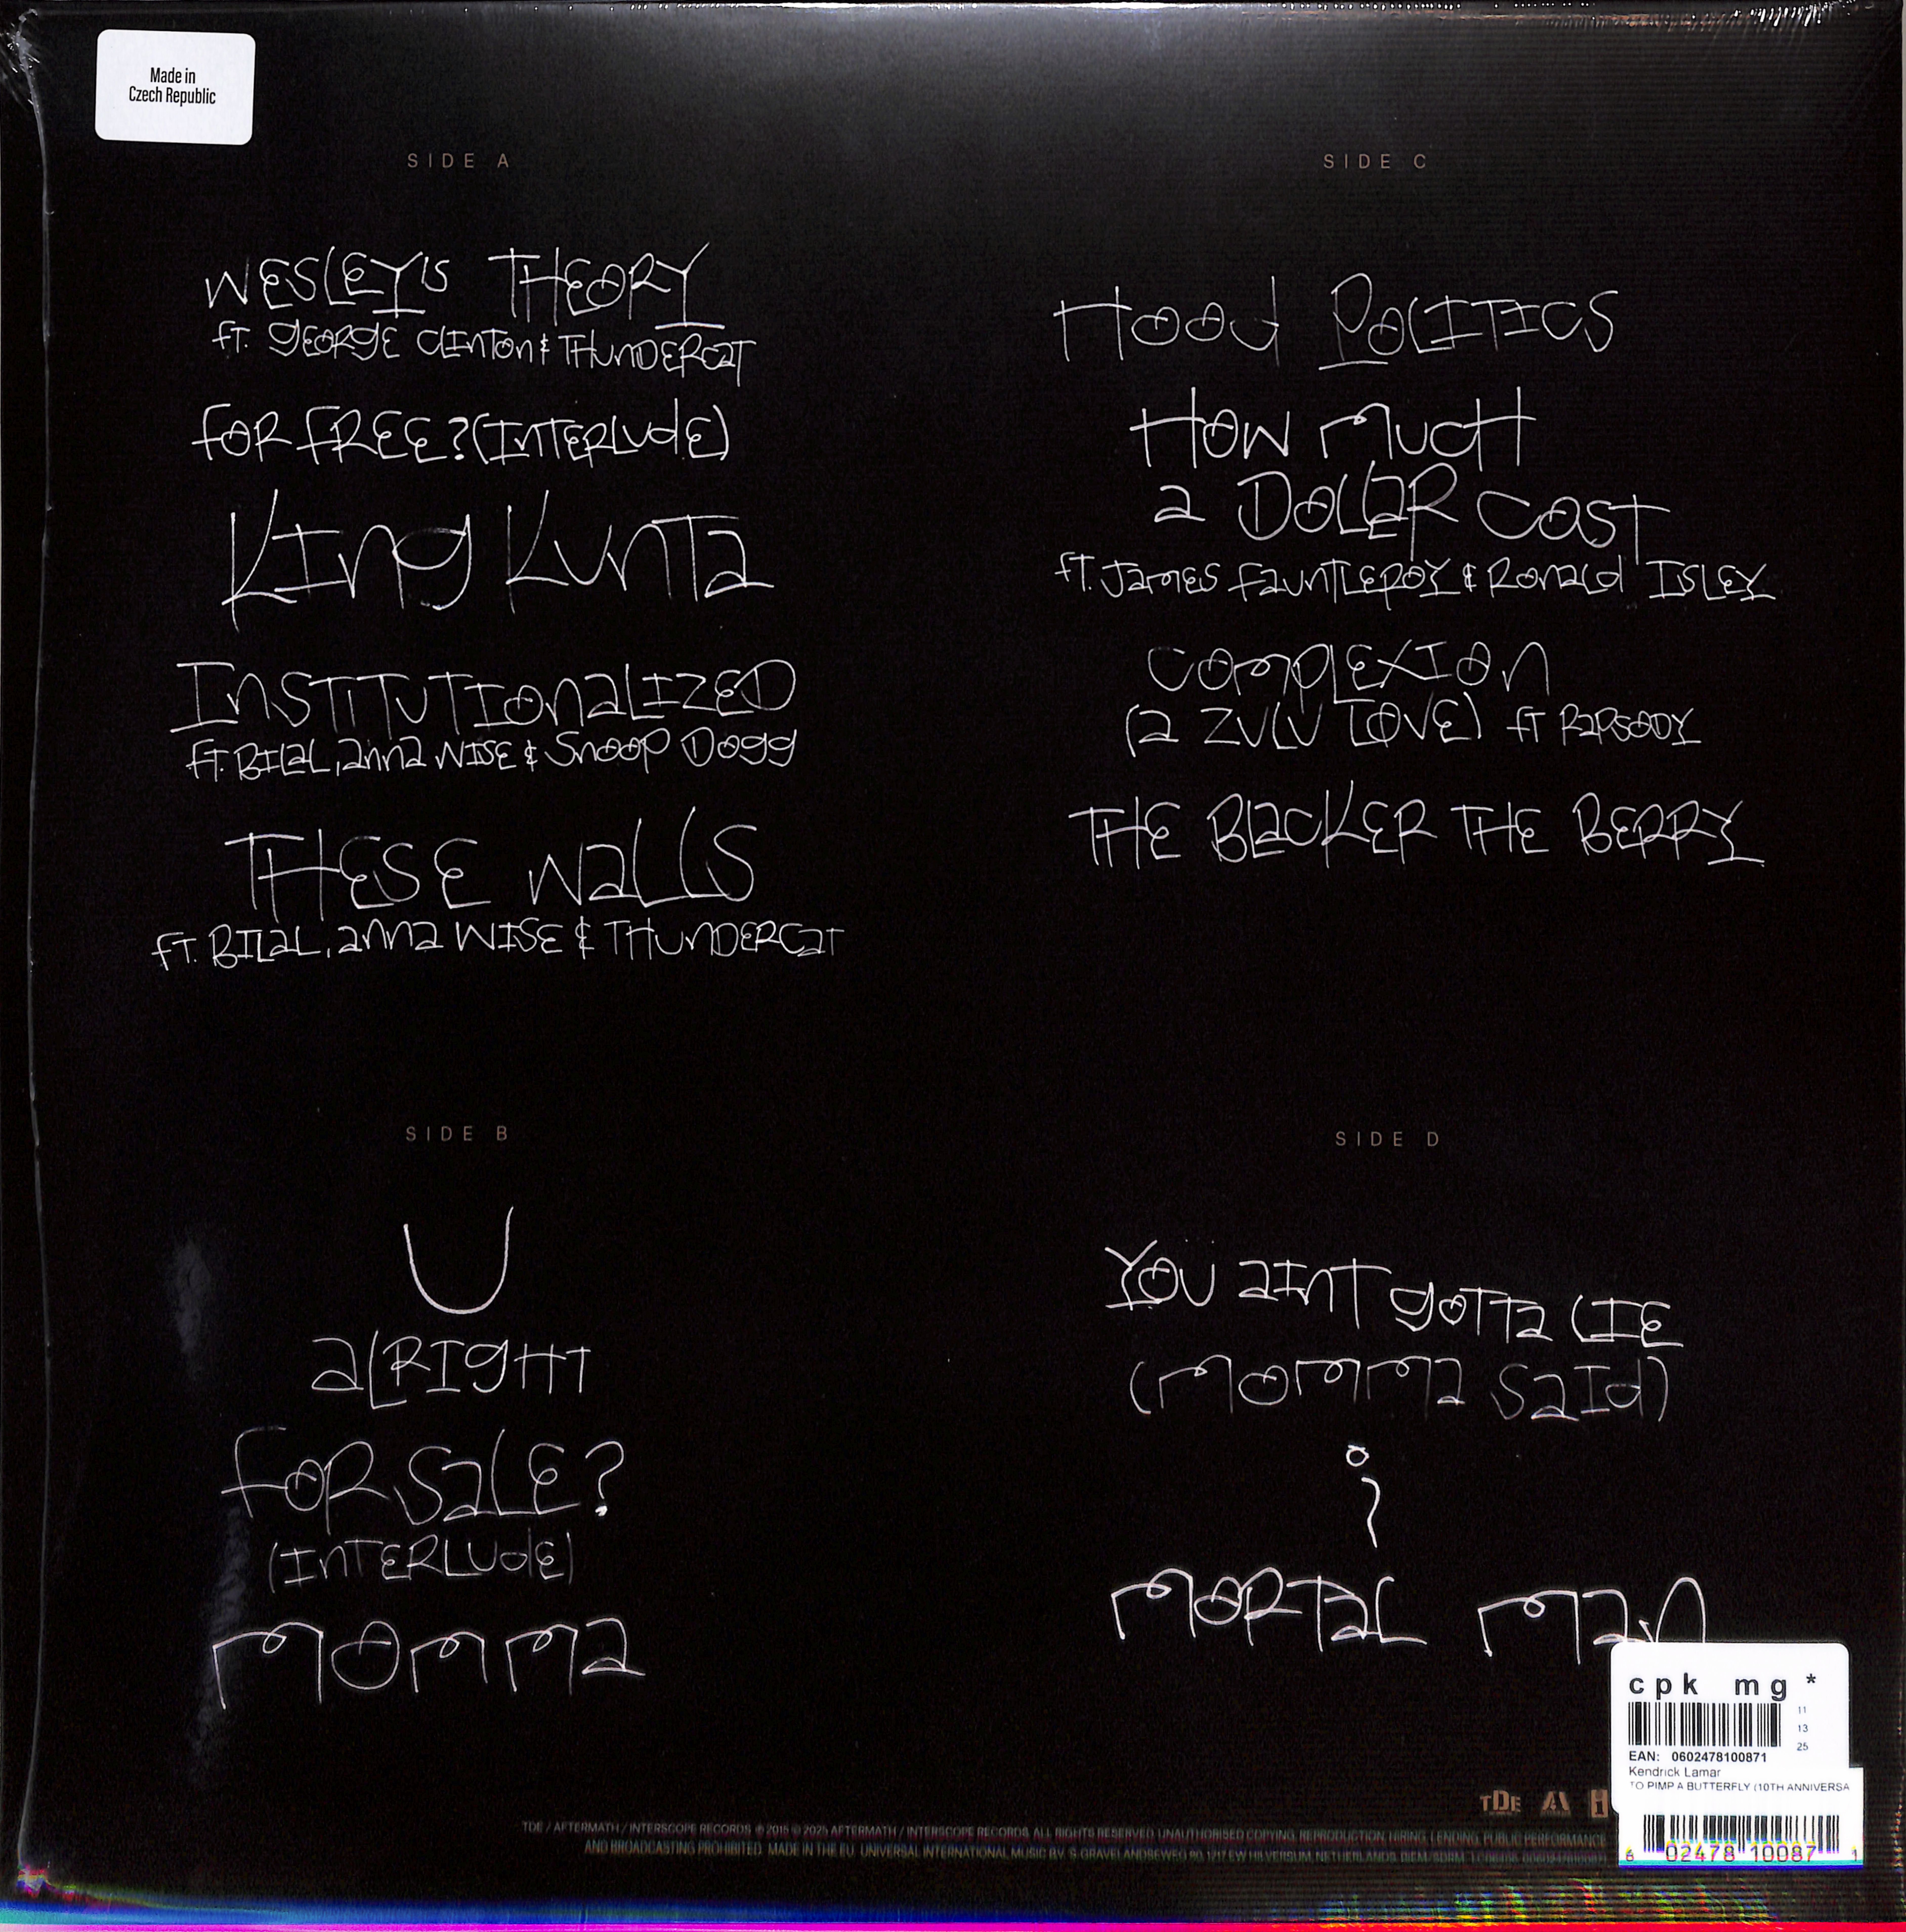 Made in
Czech Republic
SIDE A
WESLEY'S THEORY
fT. gEORgE CLINTON & THUNDERCaT
fOR FREE? (INTERLUdE)
KINg KUNTa
INSTITUTIONaLIZED
fT. BILaL, aNNa WISE & SNOOP DOgg
THESE WaLLS
fT. BILaL, aNNa WISE & THUNDERCaT
SIDE B
U
aLRIgHT
fOR SaLE?
(INTERLUdE)
MOMMa
SIDE C
HOOd POLITICS
HOW MUCH
a DOLLaR COST
fT. JaMES faUNTLEROY & RONaLd ISLEY
COMPLEXION
(a ZULU LOVE) fT RaPSODY
THE BLaCKER THE BERRY
SIDE D
YOU aINT gOTTa LIE
(MOMMa SaId)
i
MORTaL MaN
cpk mg *
11
13
25
EAN: 0602478100871
Kendrick Lamar
TO PIMP A BUTTERFLY (10TH ANNIVERSA
TDE
TDE / AFTERMATH / INTERSCOPE RECORDS ℗ 2015 © 2025 AFTERMATH / INTERSCOPE RECORDS. ALL RIGHTS RESERVED. UNAUTHORISED COPYING, REPRODUCTION, HIRING, LENDING, PUBLIC PERFORMANCE
AND BROADCASTING PROHIBITED. MADE IN THE EU. UNIVERSAL INTERNATIONAL MUSIC BV, S-GRAVELANDSEWEG 80, 1217 EW HILVERSUM, NETHERLANDS.
6 02478 10087 1